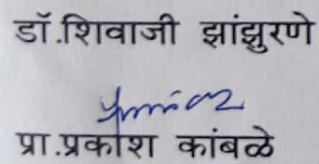 डॉ.शिवाजी झांझुरणे
प्रा.प्रकाश कांबळे